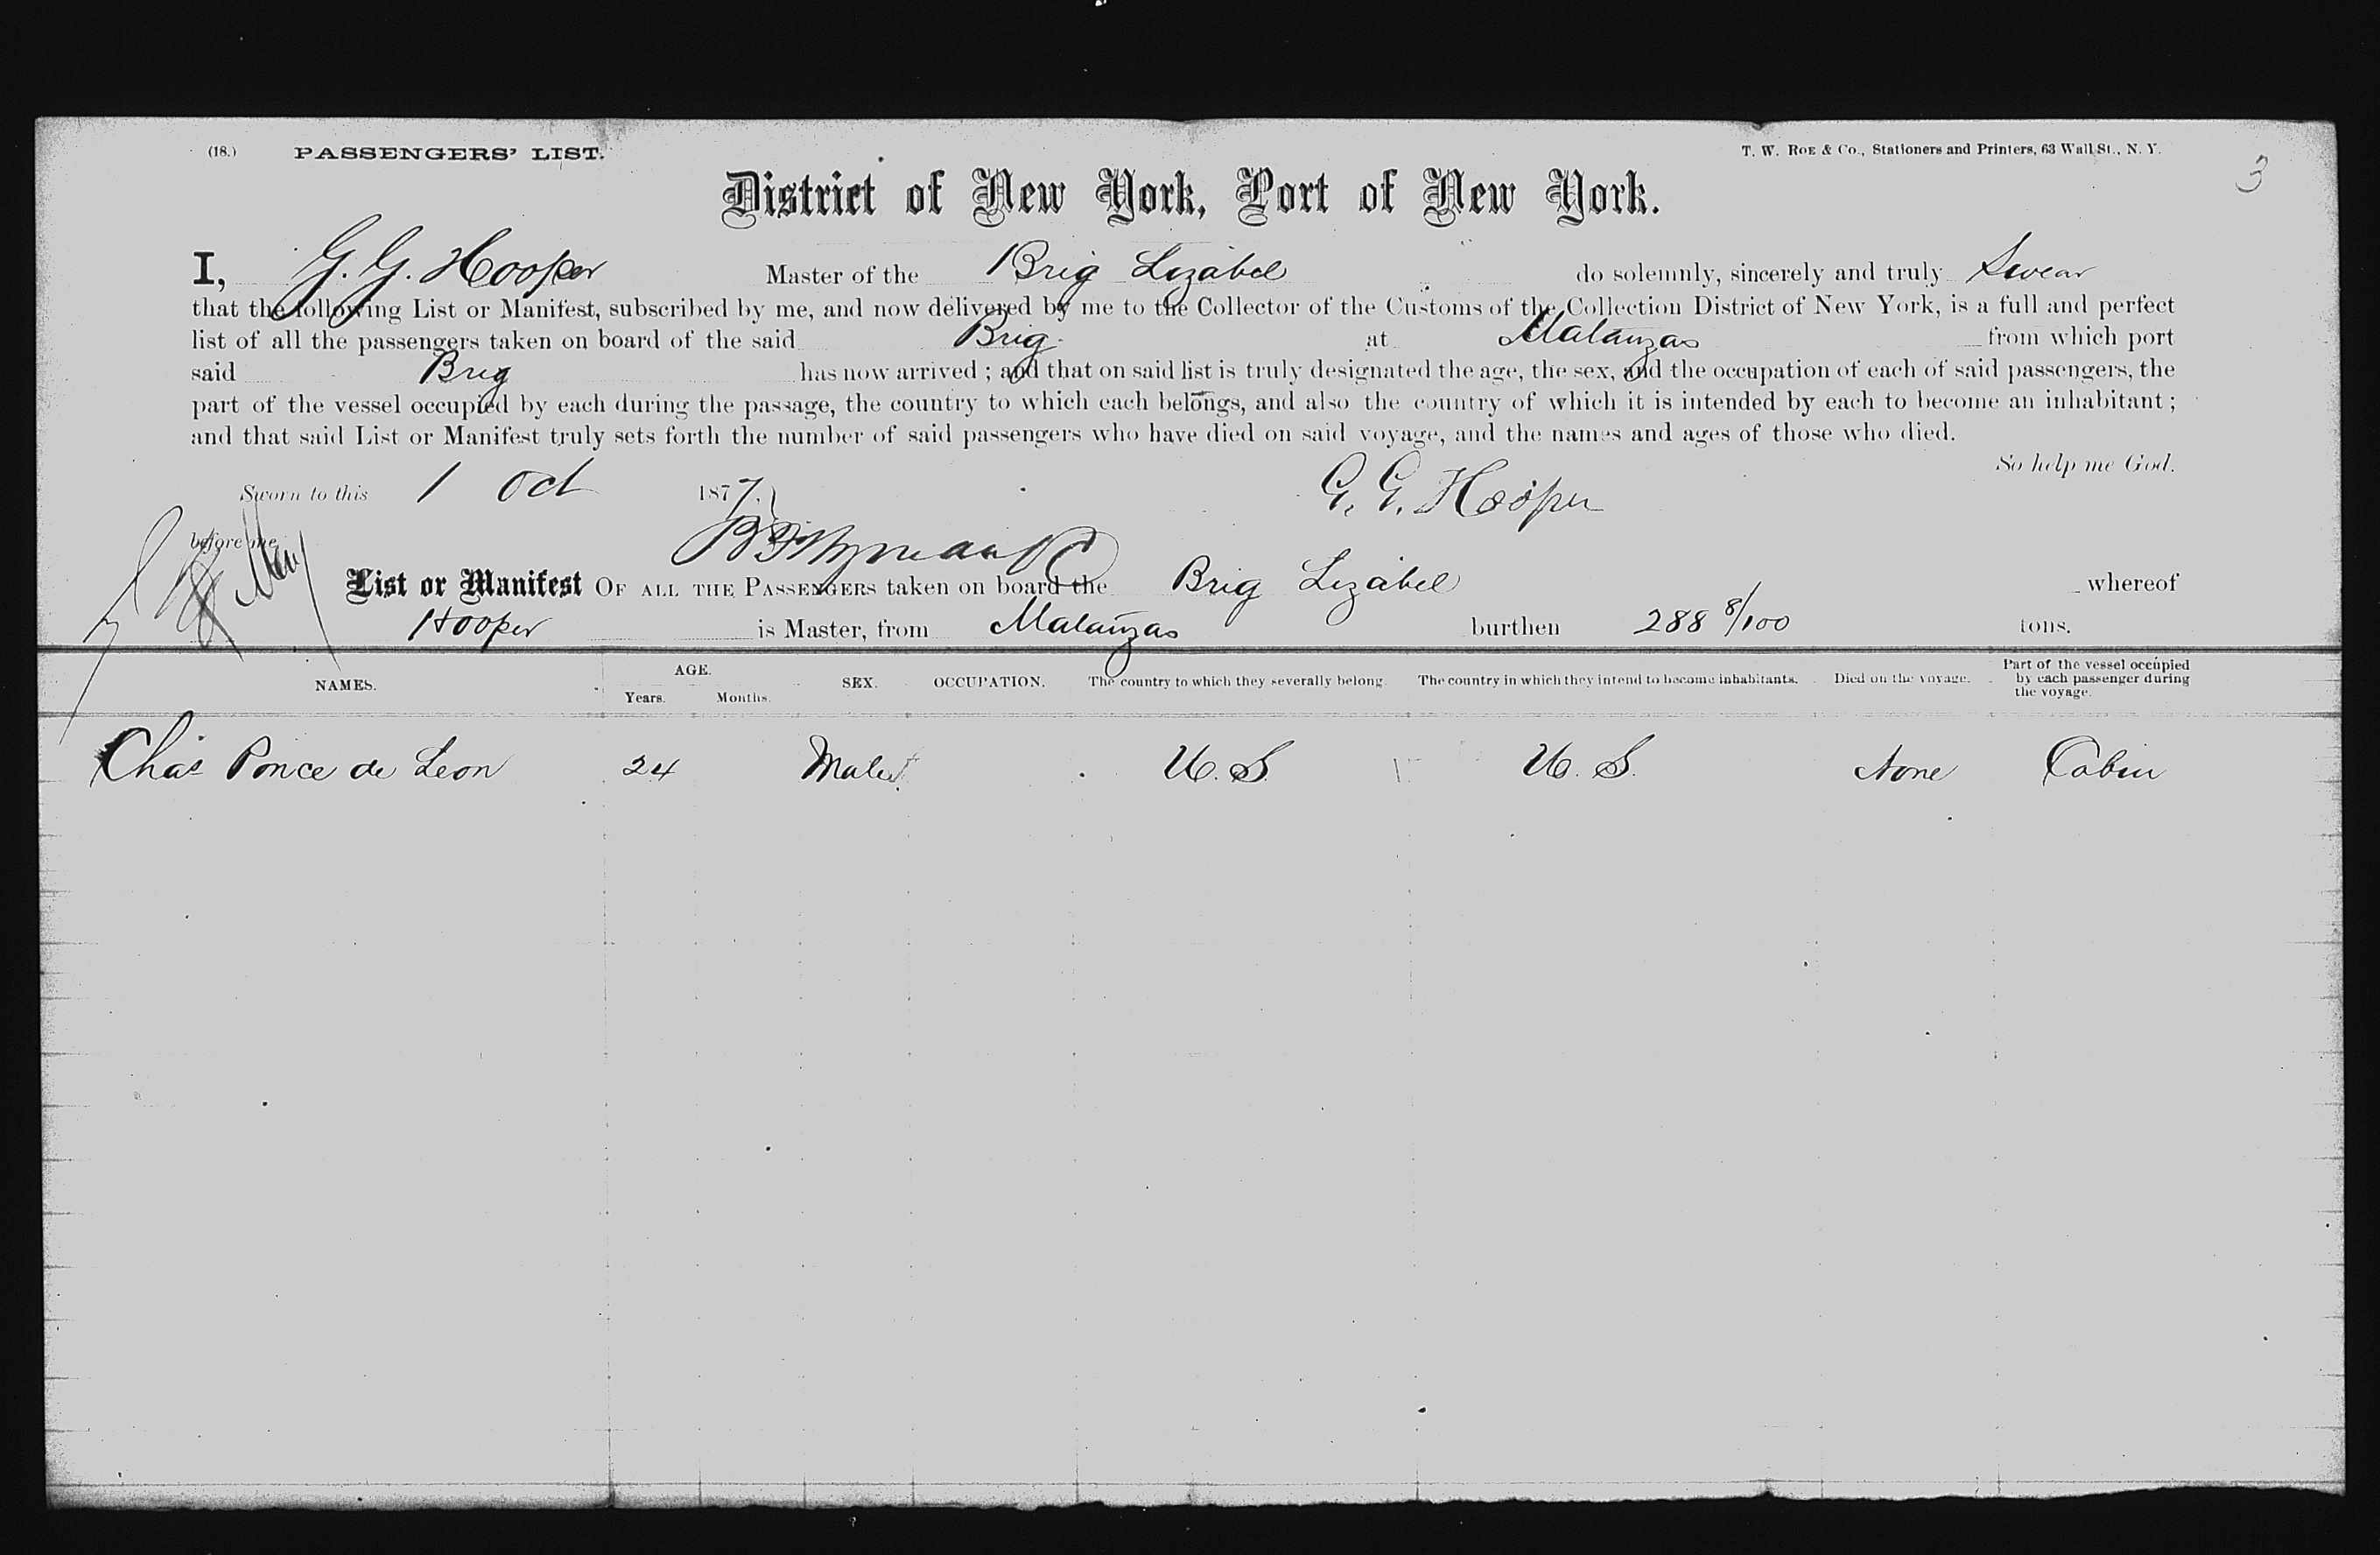 (18.) PASSENGERS' LIST. T. W. ROE & Co., Stationers and Printers, 63 Wall St., N. Y.
3
District of New York, Port of New York.
I, G. G. Hooper Master of the Brig Lizabel do solemnly, sincerely and truly Swear
that the following List or Manifest, subscribed by me, and now delivered by me to the Collector of the Customs of the Collection District of New York, is a full and perfect
list of all the passengers taken on board of the said Brig at Matanzas from which port
said Brig has now arrived; and that on said list is truly designated the age, the sex, and the occupation of each of said passengers, the
part of the vessel occupied by each during the passage, the country to which each belongs, and also the country of which it is intended by each to become an inhabitant;
and that said List or Manifest truly sets forth the number of said passengers who have died on said voyage, and the names and ages of those who died.
So help me God.
Sworn to this 1 Oct 1877. G. G. Hooper
before me
List or Manifest OF ALL THE PASSENGERS taken on board the Brig Lizabel whereof
Hooper is Master, from Matanzas burthen 288 8/100 tons.
NAMES. AGE. Years. Months. SEX. OCCUPATION. The country to which they severally belong. The country in which they intend to become inhabitants. Died on the voyage. Part of the vessel occupied by each passenger during the voyage.
Chas Ponce de Leon 24 Male U. S. U. S. None Cabin